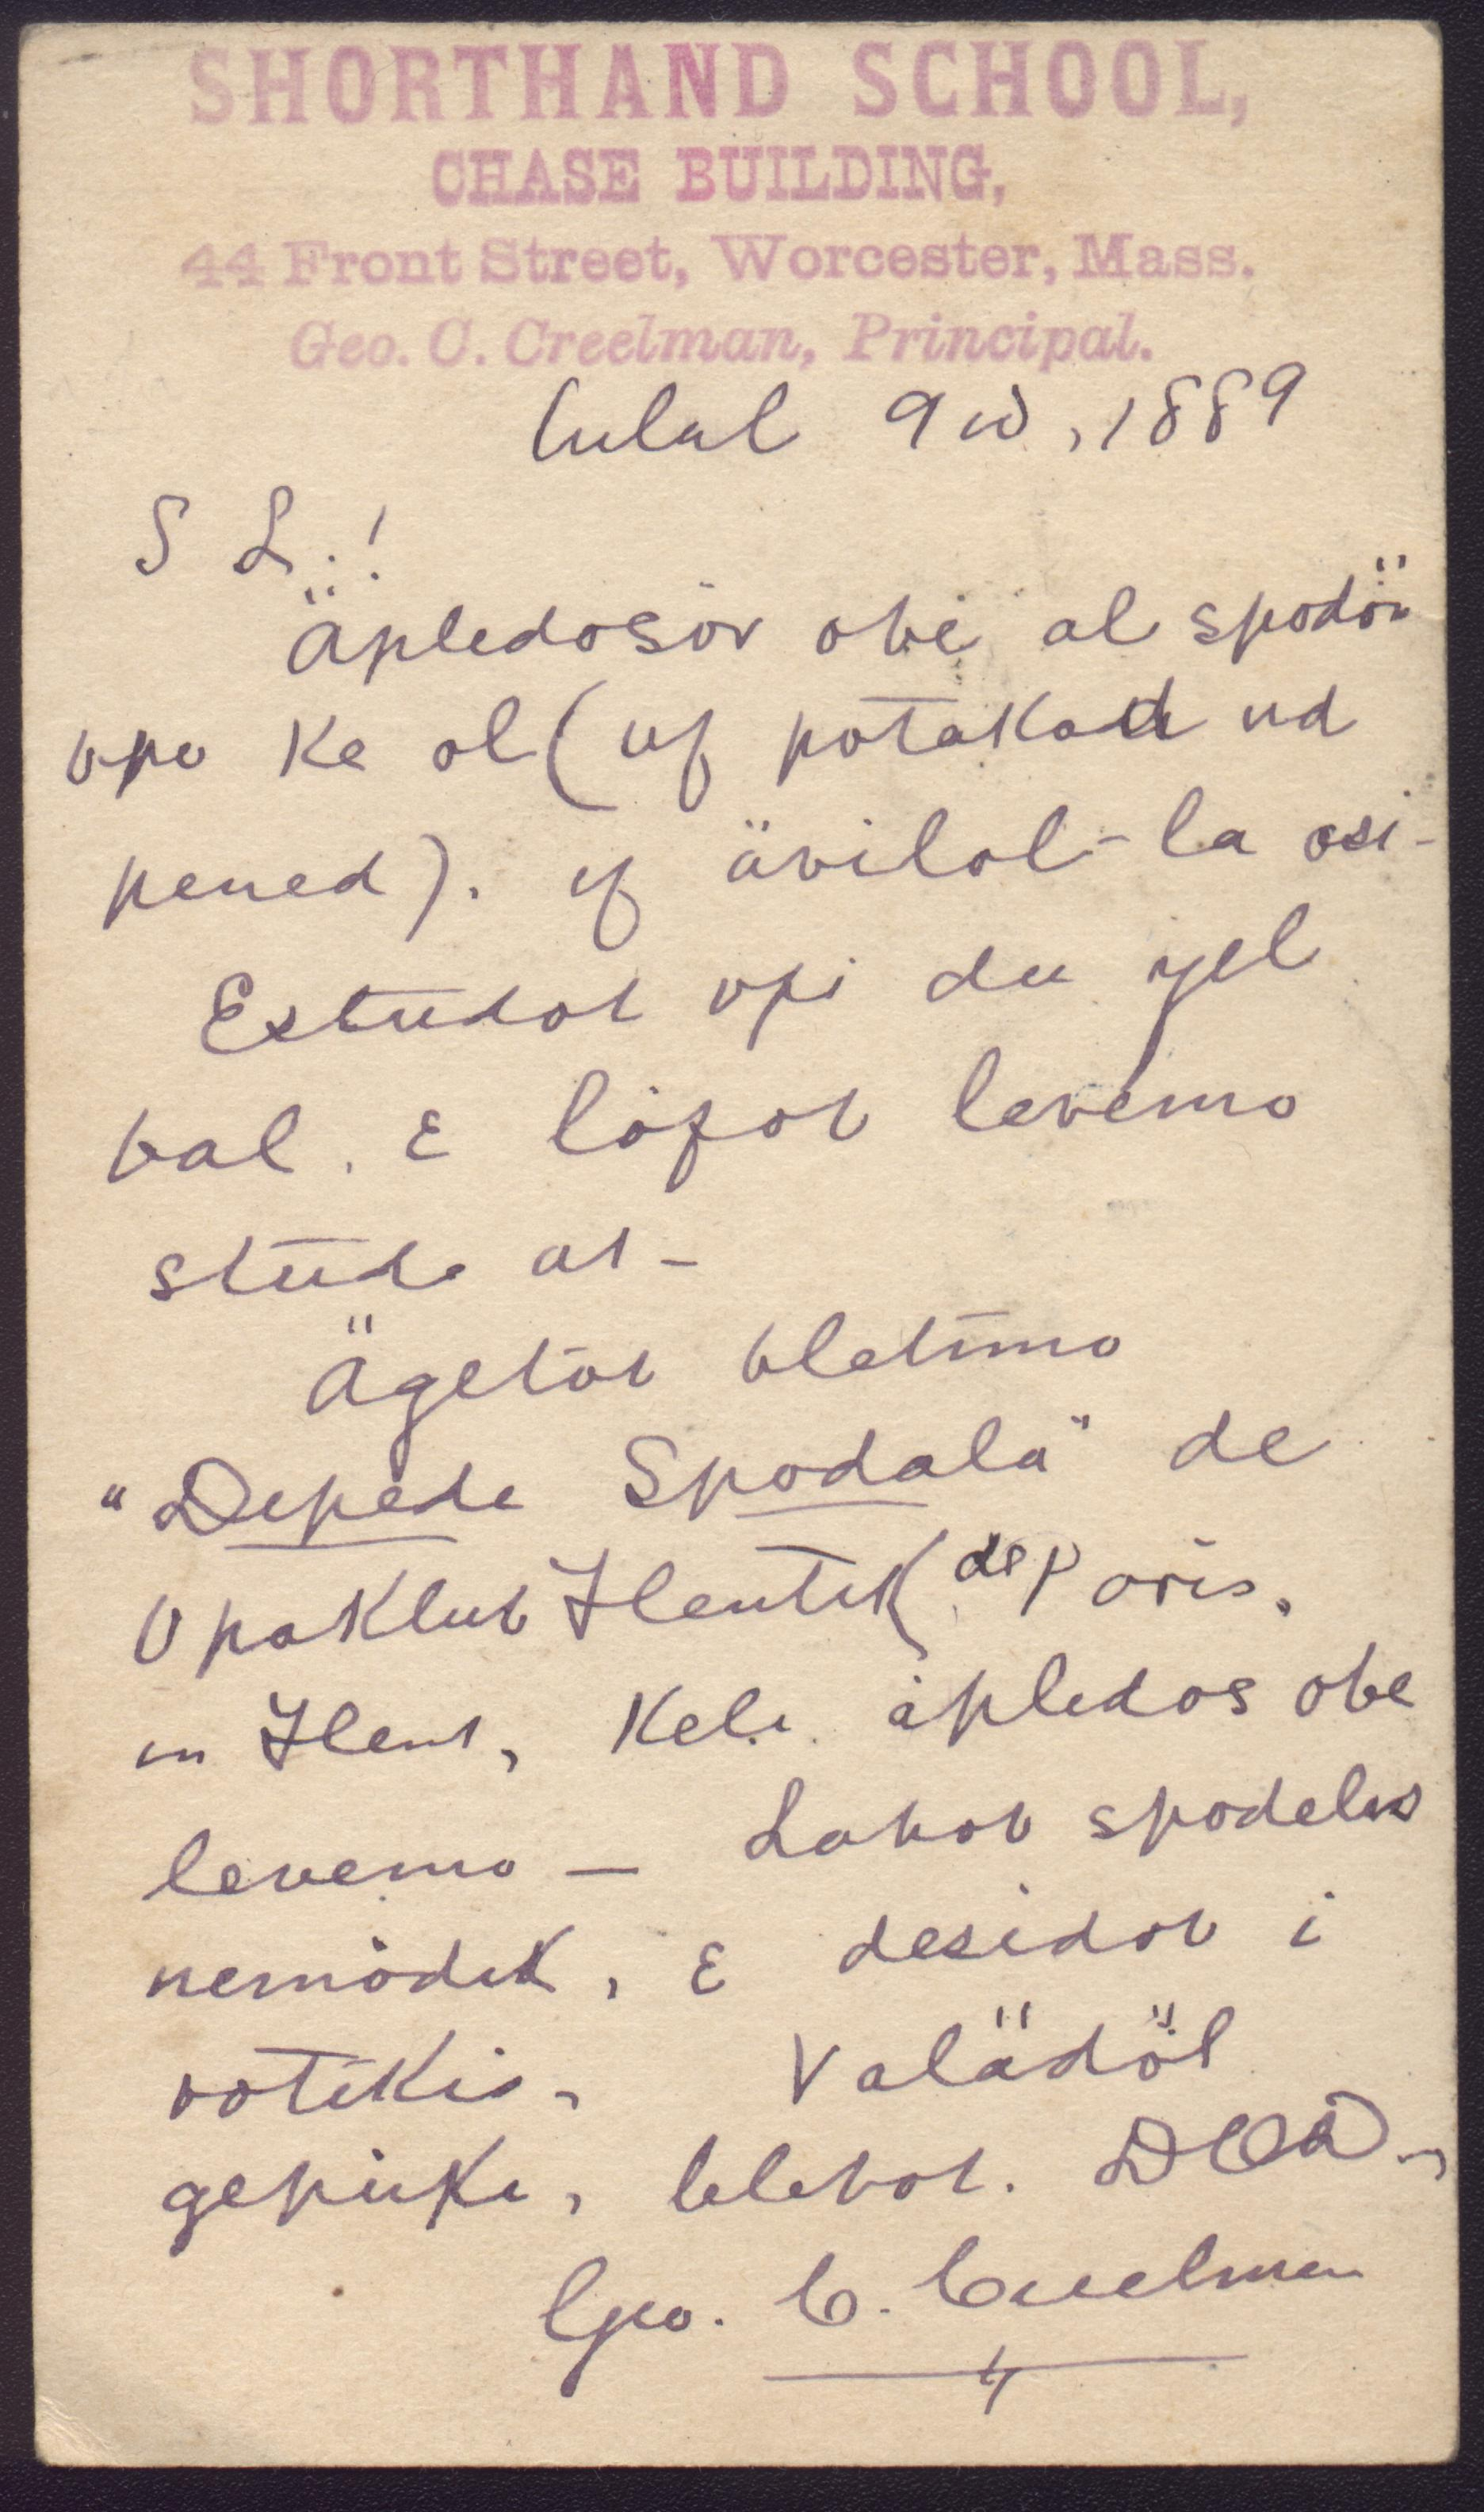 SHORTHAND SCHOOL,
CHASE BUILDING,
44 Front Street, Worcester, Mass.
Geo. C. Creelman, Principal.
lulul 9id, 1889
S L.!
Äpledosöv obe al spodön
vpo ke ol (uf potakad ud
pened). if ävilol-la osi-
Estudob vpi du yel
bal. & löfob levemo
studi at-
Ägetob bletimo
"Depedi Spodala" de
Vpaklub Flentik de Paris.
in Flent, keli äpledos obe
levemo — Labob spodelis
nemödik, & desidob i
votikis, Valädöl
gepüki, blebob. DOD.,
Geo. C. Creelman